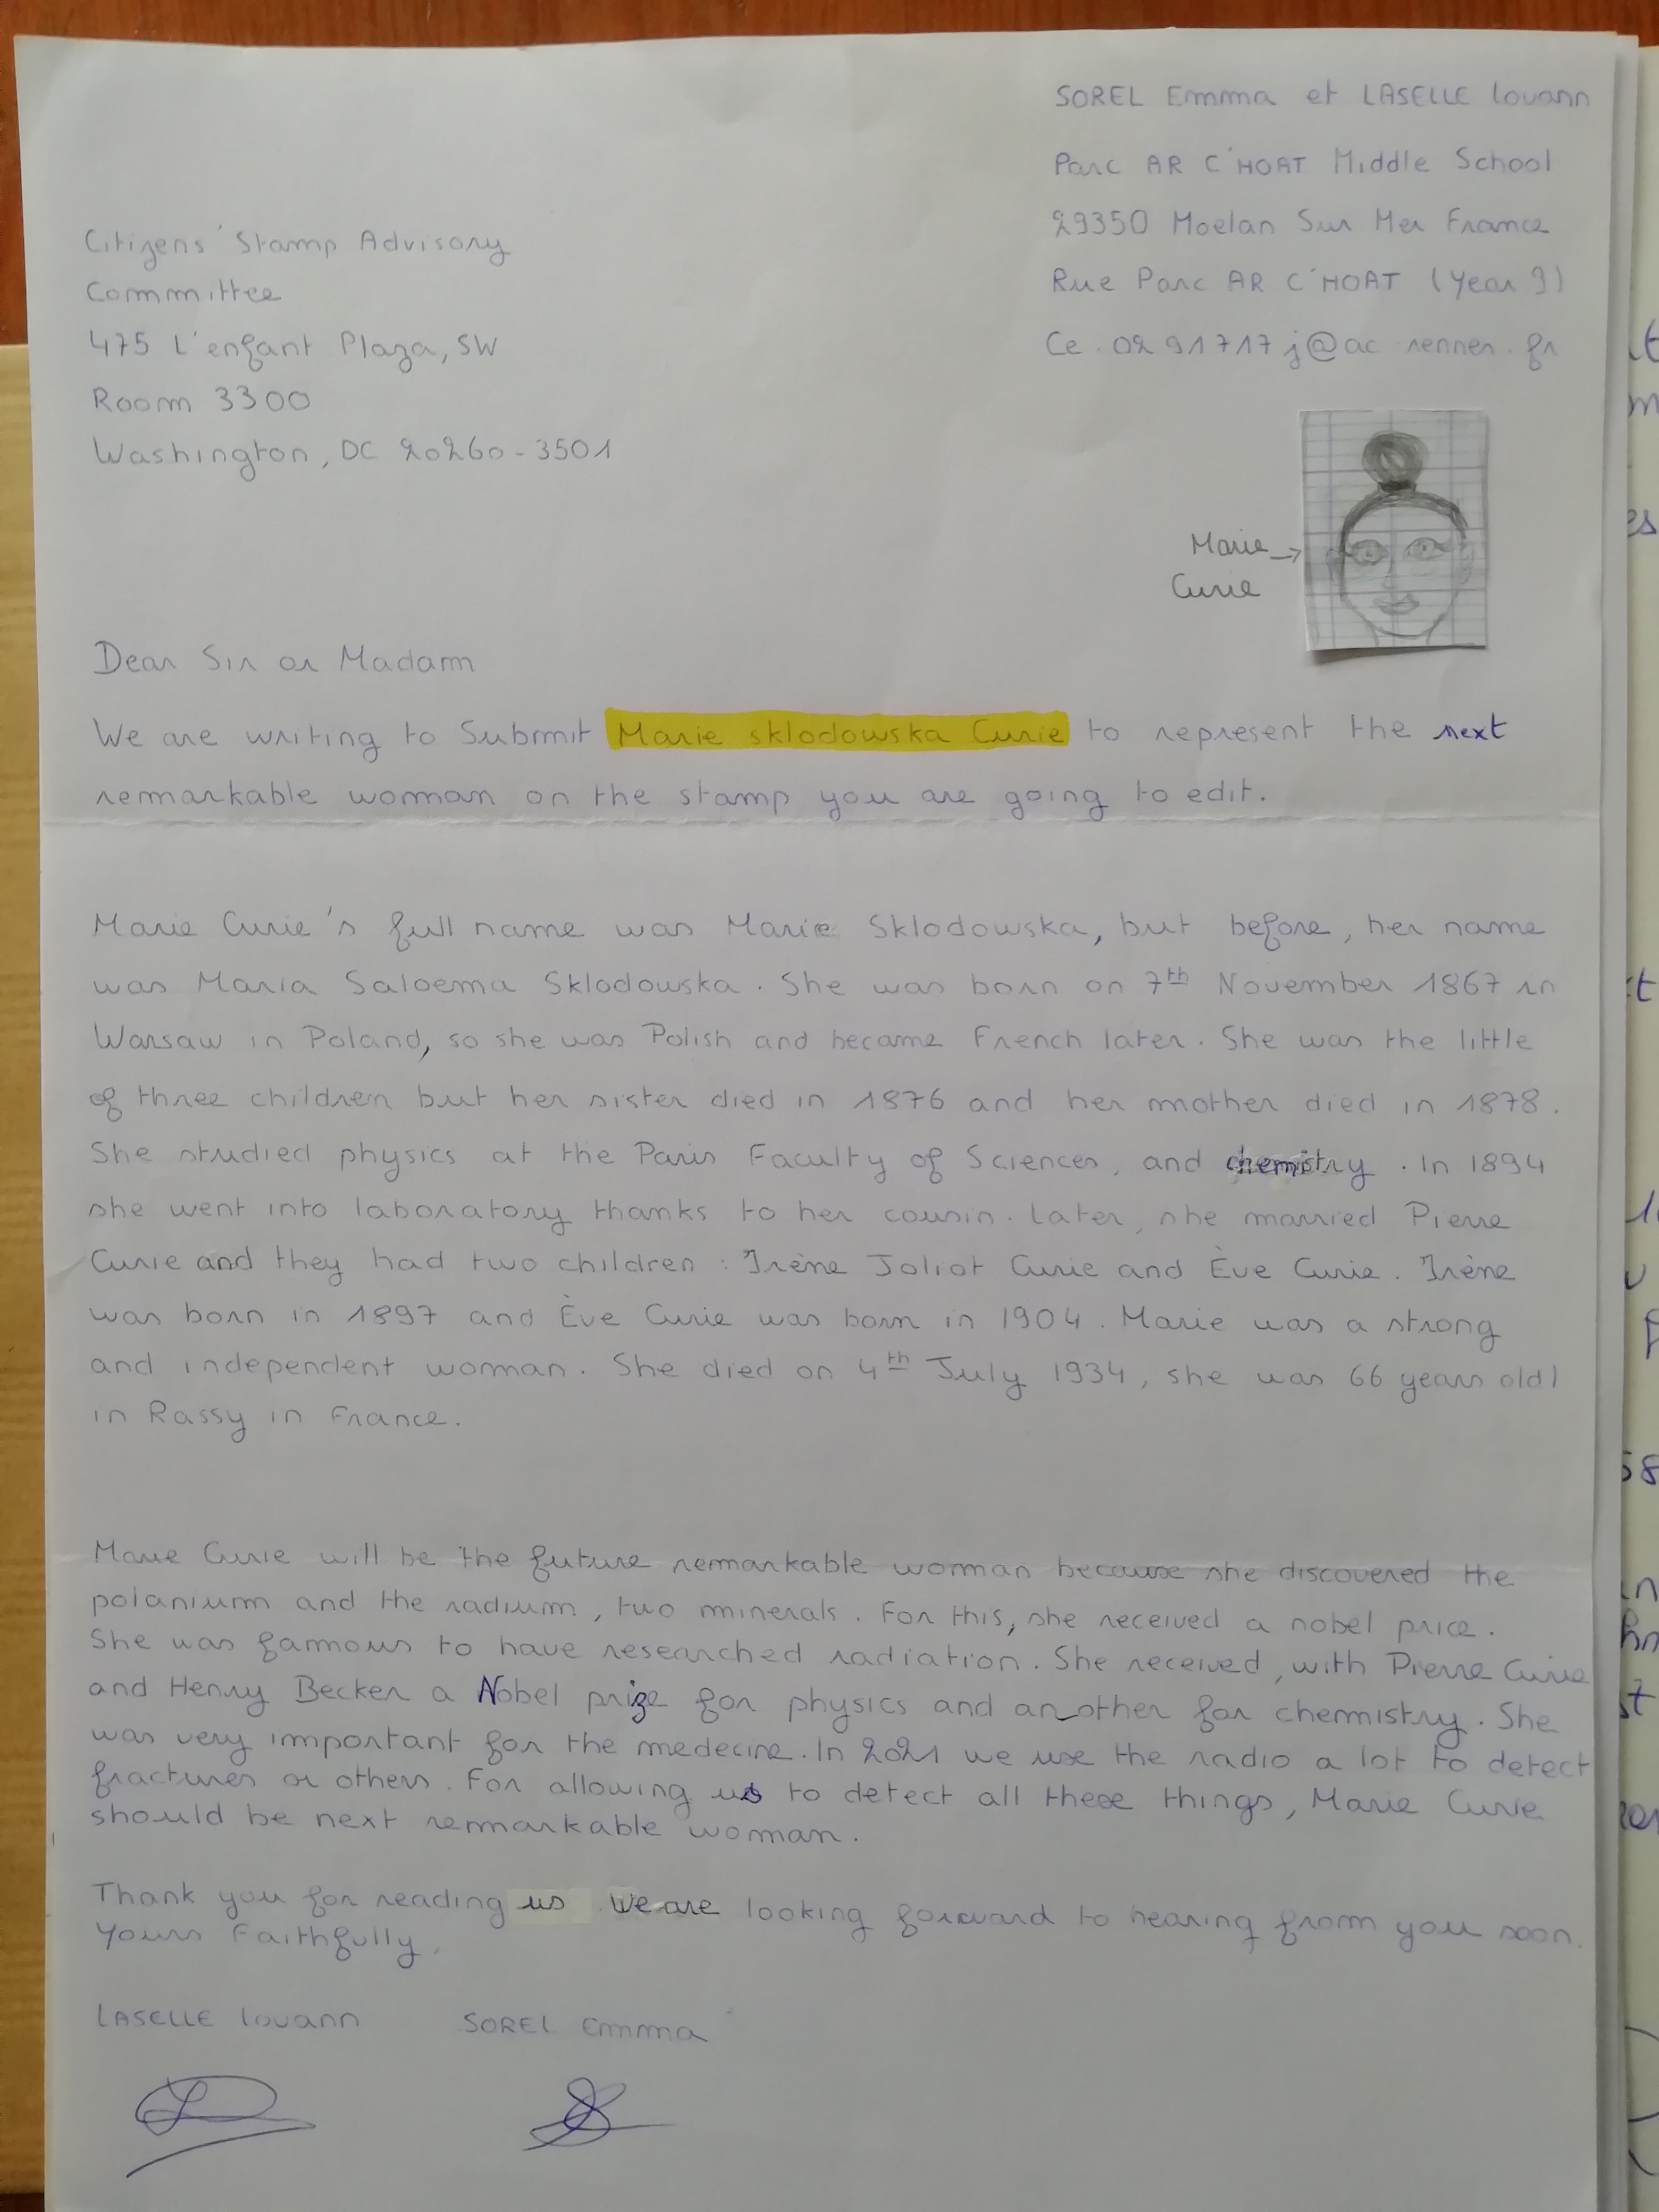 SOREL Emma et LASELLE louann
Parc AR C'HOAT Middle School
29350 Moelan Sur Mer France
Rue Parc AR C'HOAT (Year 9)
Ce.0291717j@ac rennes.fr
Citizens' Stamp Advisory
Committee
475 L'enfant Plaza, SW
Room 3300
Washington, DC 20260-3501
Marie →
Curie
Dear Sir or Madam
We are writing to Submit Marie sklodowska Curie to represent the next
remarkable woman on the stamp you are going to edit.
Marie Curie's full name was Marie Sklodowska, but before, her name
was Maria Saloema Sklodowska. She was born on 7th November 1867 in
Warsaw in Poland, so she was Polish and became French later. She was the little
of three children but her sister died in 1876 and her mother died in 1878.
She studied physics at the Paris Faculty of Sciences, and chemistry. In 1894
she went into laboratory thanks to her cousin. Later, she married Pierre
Curie and they had two children : Irène Joliot Curie and Ève Curie. Irène
was born in 1897 and Ève Curie was born in 1904. Marie was a strong
and independent woman. She died on 4th July 1934, she was 66 years old)
in Rassy in France.
Marie Curie will be the future remarkable woman because she discovered the
polanium and the radium, two minerals. For this, she received a nobel price.
She was famous to have researched radiation. She received, with Pierre Curie
and Henry Becker a Nobel prize for physics and another for chemistry. She
was very important for the medecine. In 2021 we use the radio a lot to detect
fractures or others. For allowing us to detect all these things, Marie Curie
should be next remarkable woman.
Thank you for reading us We are looking forward to hearing from you soon.
Yours Faithfully,
LASELLE louann SOREL Emma